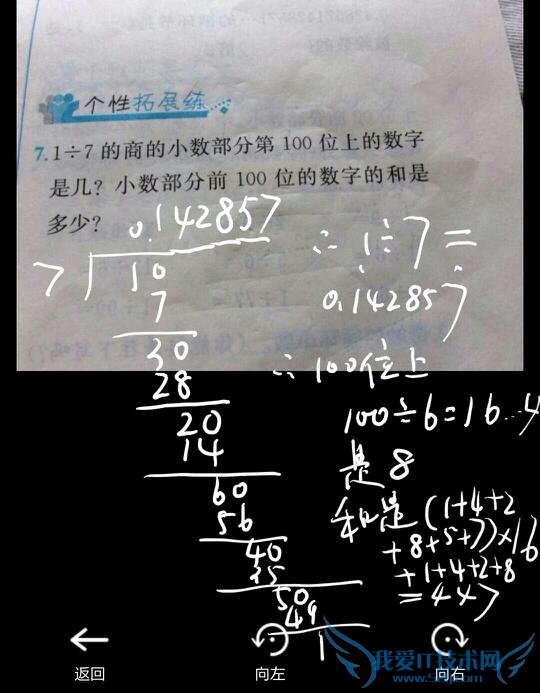 个性拓展练
7.1÷7 的商的小数部分第 100 位上的数字
是几？小数部分前 100 位的数字的和是
多少？
0.142857
7
10
7
30
28
20
14
60
56
40
35
50
49
1
∴ 1÷7=
0.142857
∴ 100位上
100÷6=16…4
是 8
和是(1+4+2
+8+5+7)×16
+1+4+2+8
=447
返回
向左
向右
我爱IT技术网